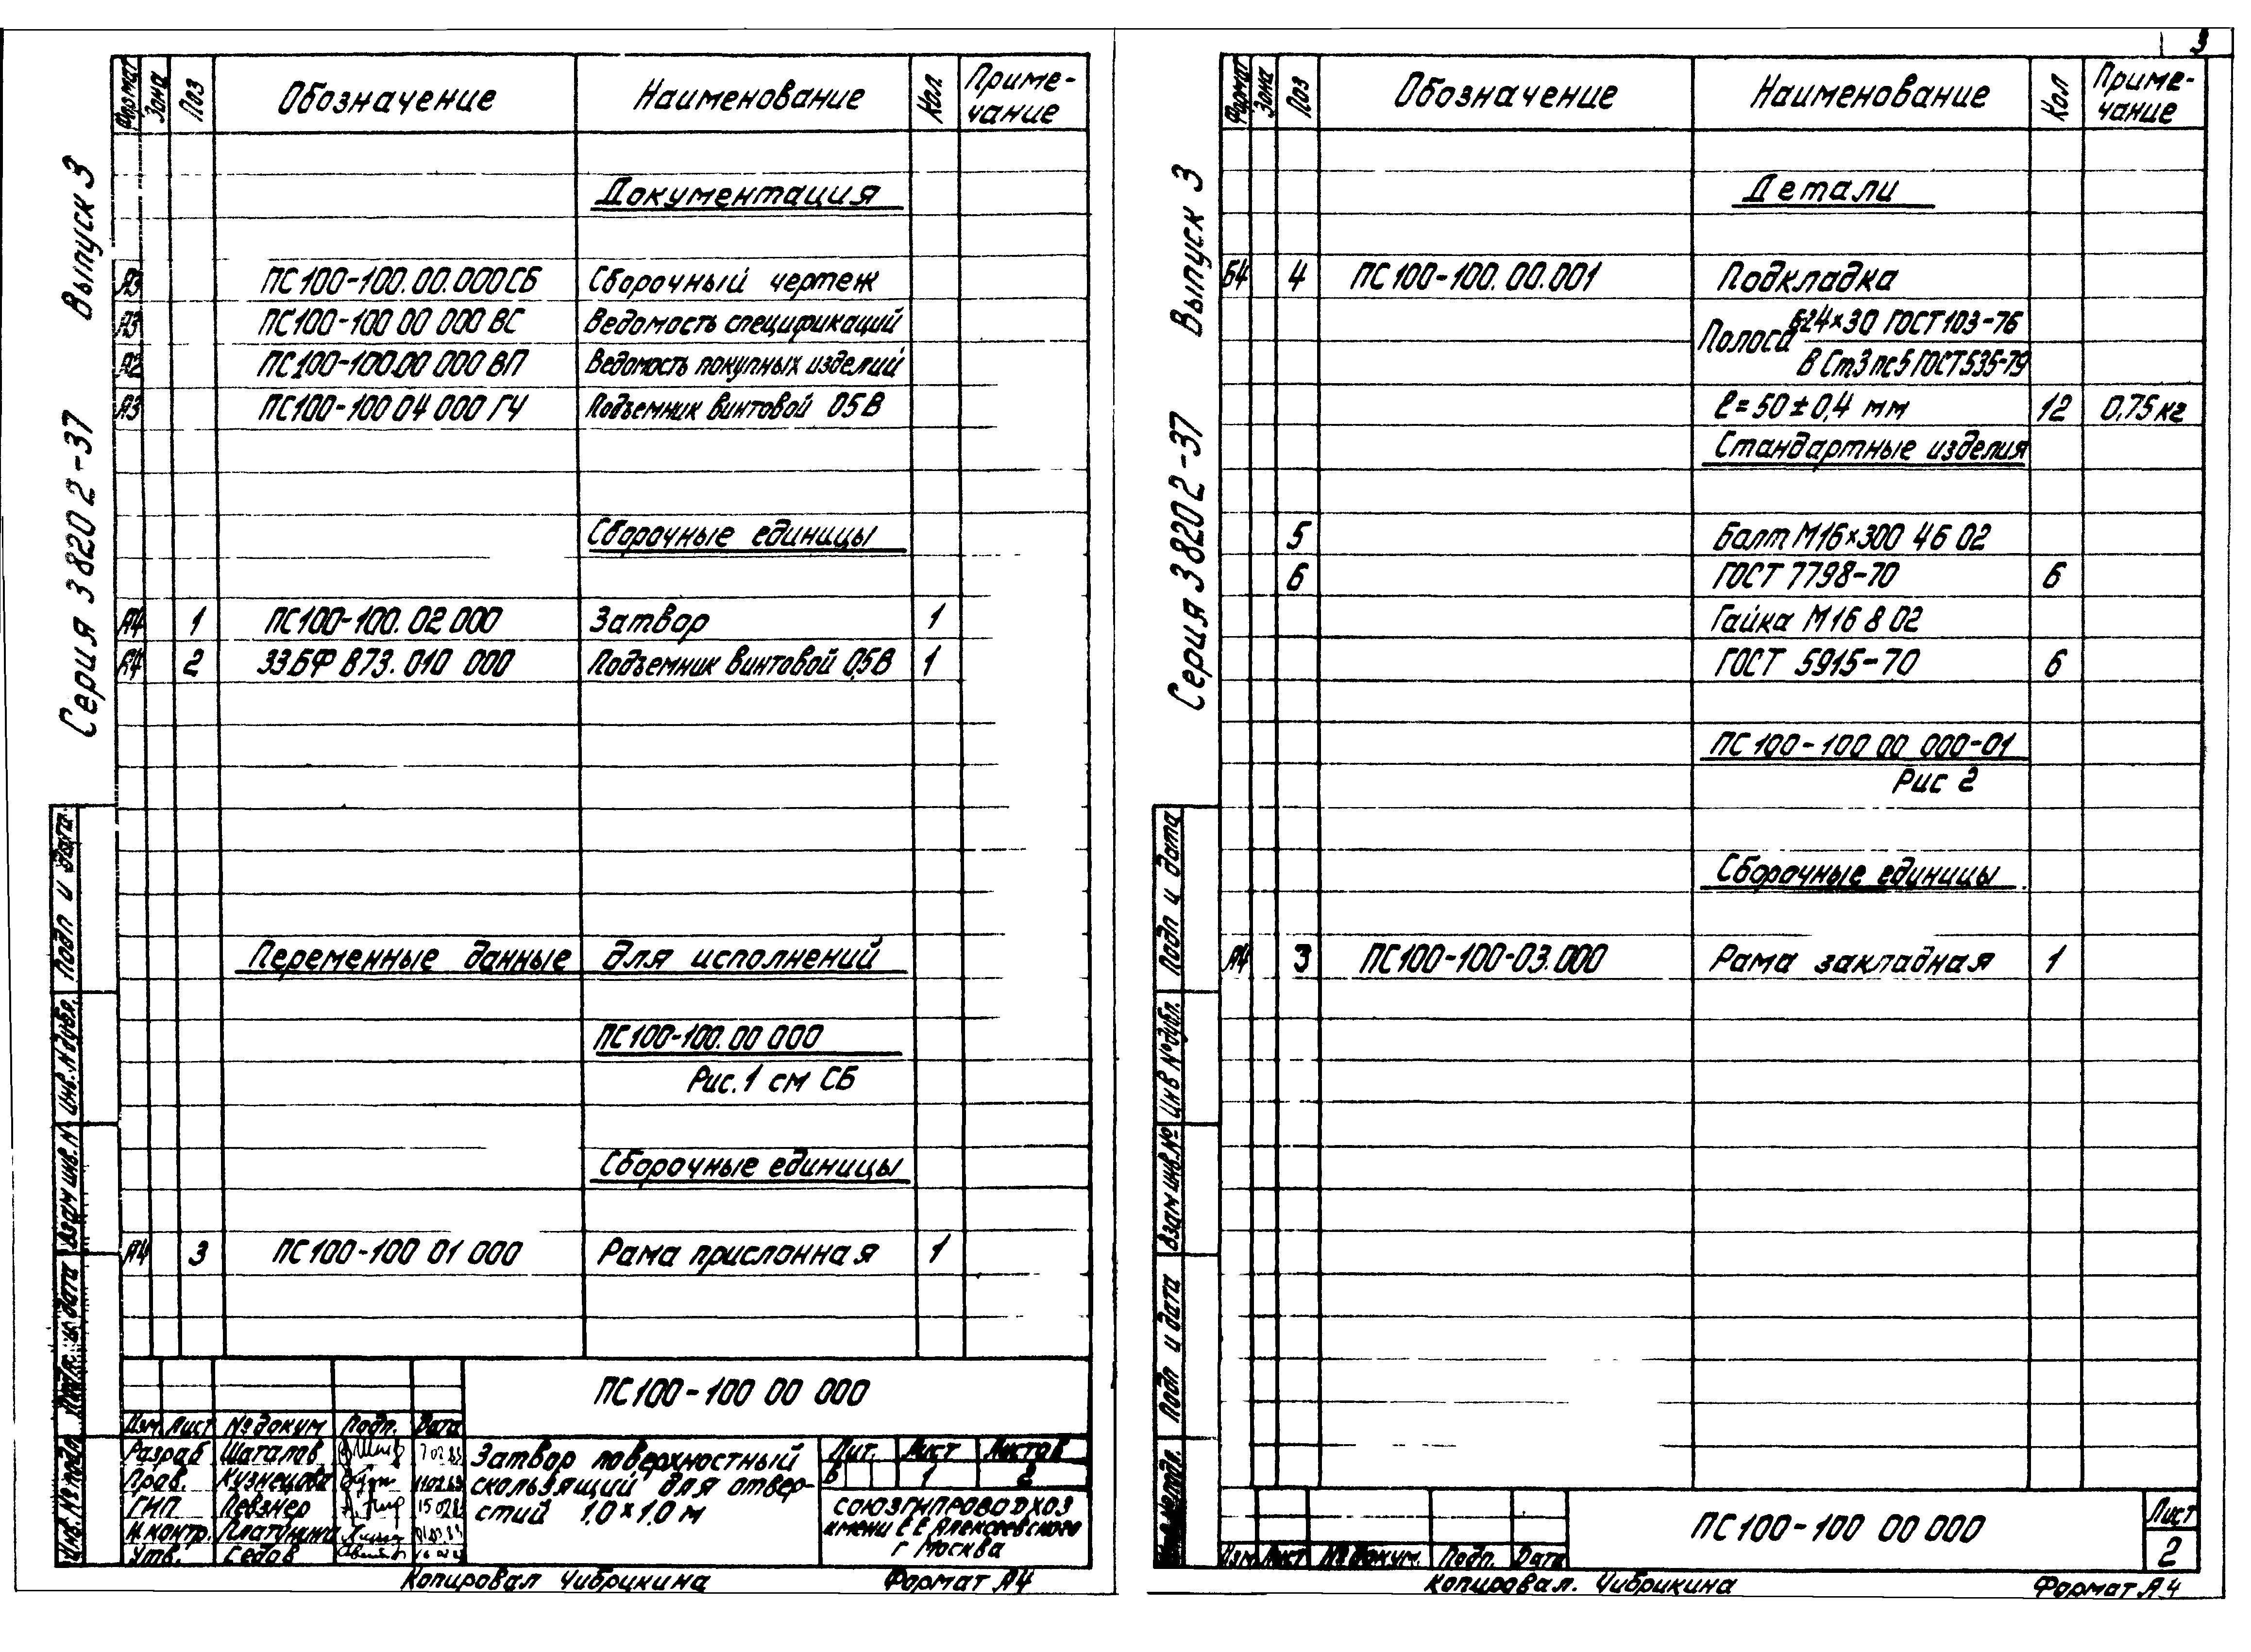 3
Серия 3 820 2-37 Выпуск 3
Формат Зона Поз Обозначение Наименование Кол Приме-
чание
Документация
А3 ПС100-100.00.000СБ Сборочный чертеж
А3 ПС100-100 00 000 ВС Ведомость спецификаций
А2 ПС100-100.00 000 ВП Ведомость покупных изделий
А3 ПС100-100 04 000 ГЧ Подъемник винтовой 05В
Сборочные единицы
А4 1 ПС100-100. 02 000 Затвор 1
А4 2 33.БФ В73. 010 000 Подъемник винтовой 0,5В 1
Переменные данные для исполнений
ПС100-100. 00 000
Рис. 1 см СБ
Сборочные единицы
А4 3 ПС100-100 01 000 Рама прислонная 1
Подп и дата
Инв. N дубл.
Взам инв. N
Подп. и дата
Инв. № подл.
ПС100-100 00 000
Изм. Лист № докум Подп. Дата
Разраб Шаталов
Пров. Кузнецова
ГИП Певзнер
Н.контр. Платунина
Утв. Седов
Затвор поверхностный
скользящий для отвер-
стий 1,0×1,0 м
Лит. Лист Листов
В 1 2
СОЮЗГИПРОВОДХОЗ
имени Е Е Алексеевского
г Москва
Копировал Чибрикина Формат А4
Серия 3 820 2-37 Выпуск 3
Формат Зона Поз Обозначение Наименование Кол Приме-
чание
Детали
Б4 4 ПС100-100. 00.001 Подкладка
Полоса 24×30 ГОСТ 103-76
В Ст3 пс5 ГОСТ 535-79
ℓ=50±0,4 мм 12 0,75 кг
Стандартные изделия
5 Болт М16×300 46 02
6 ГОСТ 7798-70 6
Гайка М16 8 02
ГОСТ 5915-70 6
ПС100-100 00 000-01
Рис 2
Сборочные единицы
А4 3 ПС100-100-03.000 Рама закладная 1
Подп и дата
Инв № дубл.
Взам инв. №
Подп и дата
Изм Лист № докум. Подп. Дата
ПС100-100 00 000
Лист
2
Копировал. Чибрикина Формат А4